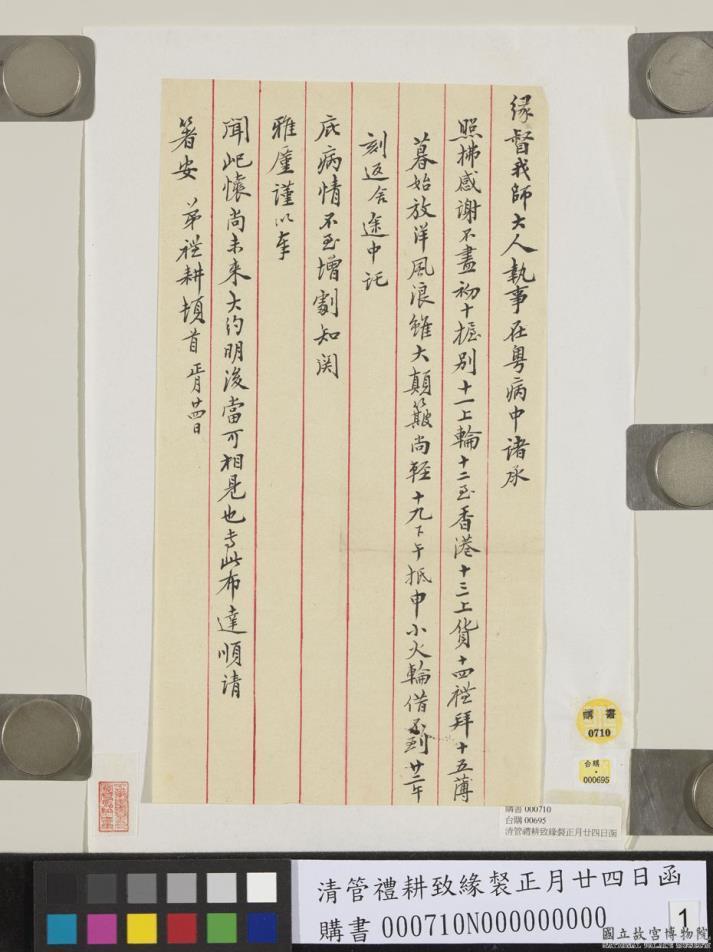 緣督我師大人執事在粵病中諸承
照拂感謝不盡初十握別十一上輪十二至香港十三上貨十四禮拜十五薄
暮始放洋風浪雖大顛簸尚輕十九下午抵申小火輪借不到廿二午
刻返舍途中託
庇病情不至增劇知関
雅廑謹以奉
聞屺懷尚未來大約明後當可相見也专此布達順请
箸安 弟禮耕頓首 正月廿四日
購書
0710
台購
000695
購書 000710
台購 00695
清管禮耕致緣裻正月廿四日函
清管禮耕致緣裻正月廿四日函
購書 000710N000000000
1
國立故宮博物院